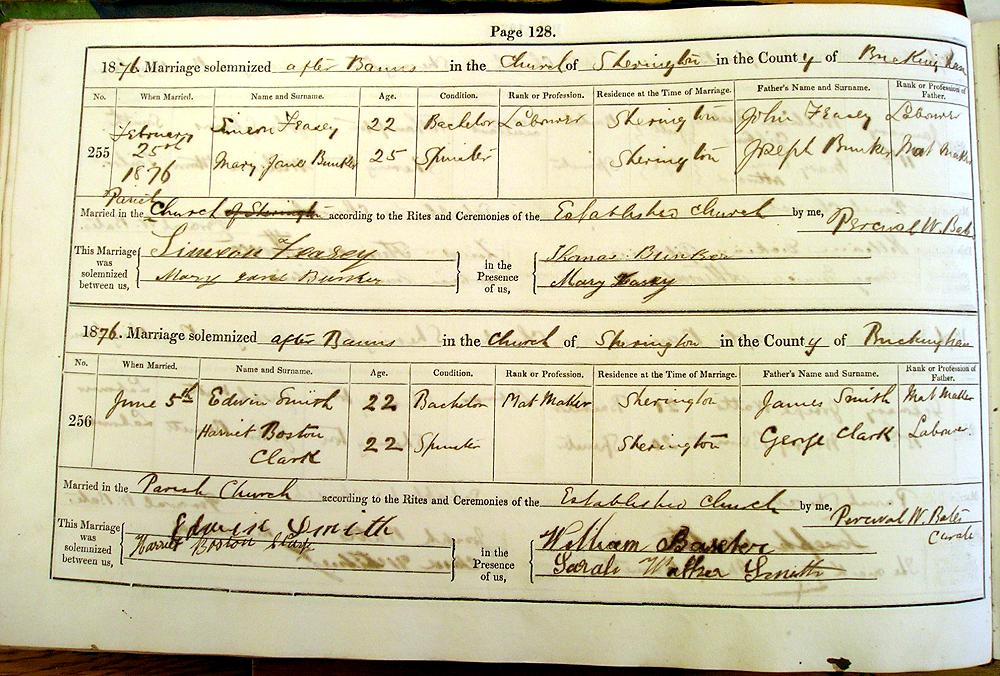 Page 128.
1876. Marriage solemnized after Banns in the Church of Sherington in the County of Buckingham
No. When Married. Name and Surname. Age. Condition. Rank or Profession. Residence at the Time of Marriage. Father's Name and Surname. Rank or Profession of Father.
255 February 25th 1876 Simeon Feasey 22 Bachelor Labourer Sherington John Feasey Labourer
Mary Jane Bunker 25 Spinster Sherington Joseph Bunker Mat Maker
Married in the Parish Church of Sherington according to the Rites and Ceremonies of the Established Church by me, Percival W. Bate
This Marriage was solemnized between us, Simeon Feasey
Mary Jane Bunker
in the Presence of us, Thomas Bunker
Mary Feasey
1876. Marriage solemnized after Banns in the Church of Sherington in the County of Buckingham
No. When Married. Name and Surname. Age. Condition. Rank or Profession. Residence at the Time of Marriage. Father's Name and Surname. Rank or Profession of Father.
256 June 5th Edwin Smith 22 Bachelor Mat Maker Sherington James Smith Mat Maker
Harriet Boston Clark 22 Spinster Sherington George Clark Labourer
Married in the Parish Church according to the Rites and Ceremonies of the Established Church by me, Percival W. Bate Curate
This Marriage was solemnized between us, Edwin Smith
Harriet Boston Clark
in the Presence of us, William Baxter
Sarah Walker Smith